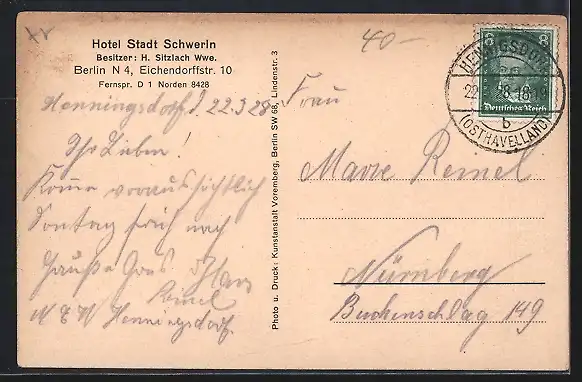 40-
Hotel Stadt Schwerin
Besitzer: H. Sitzlach Wwe.
Berlin N 4, Eichendorffstr. 10
Fernspr. D 1 Norden 8428
Henningsdorf, d. 22.3.28
Ihr Lieben!
Komme voraussichtlich
Sonntag früh nach
Hause Gruß Hans
Reinel
Henningsdorf.
Photo u. Druck: Kunstanstalt Voremberg, Berlin SW 68, Lindenstr. 3
8 8
Deutsches Reich
HENNIGSDORF
22. 28.18-19
b
(OSTHAVELLAND)
Frau
Marie Reinel
Nürnberg
Buchenschlag 149